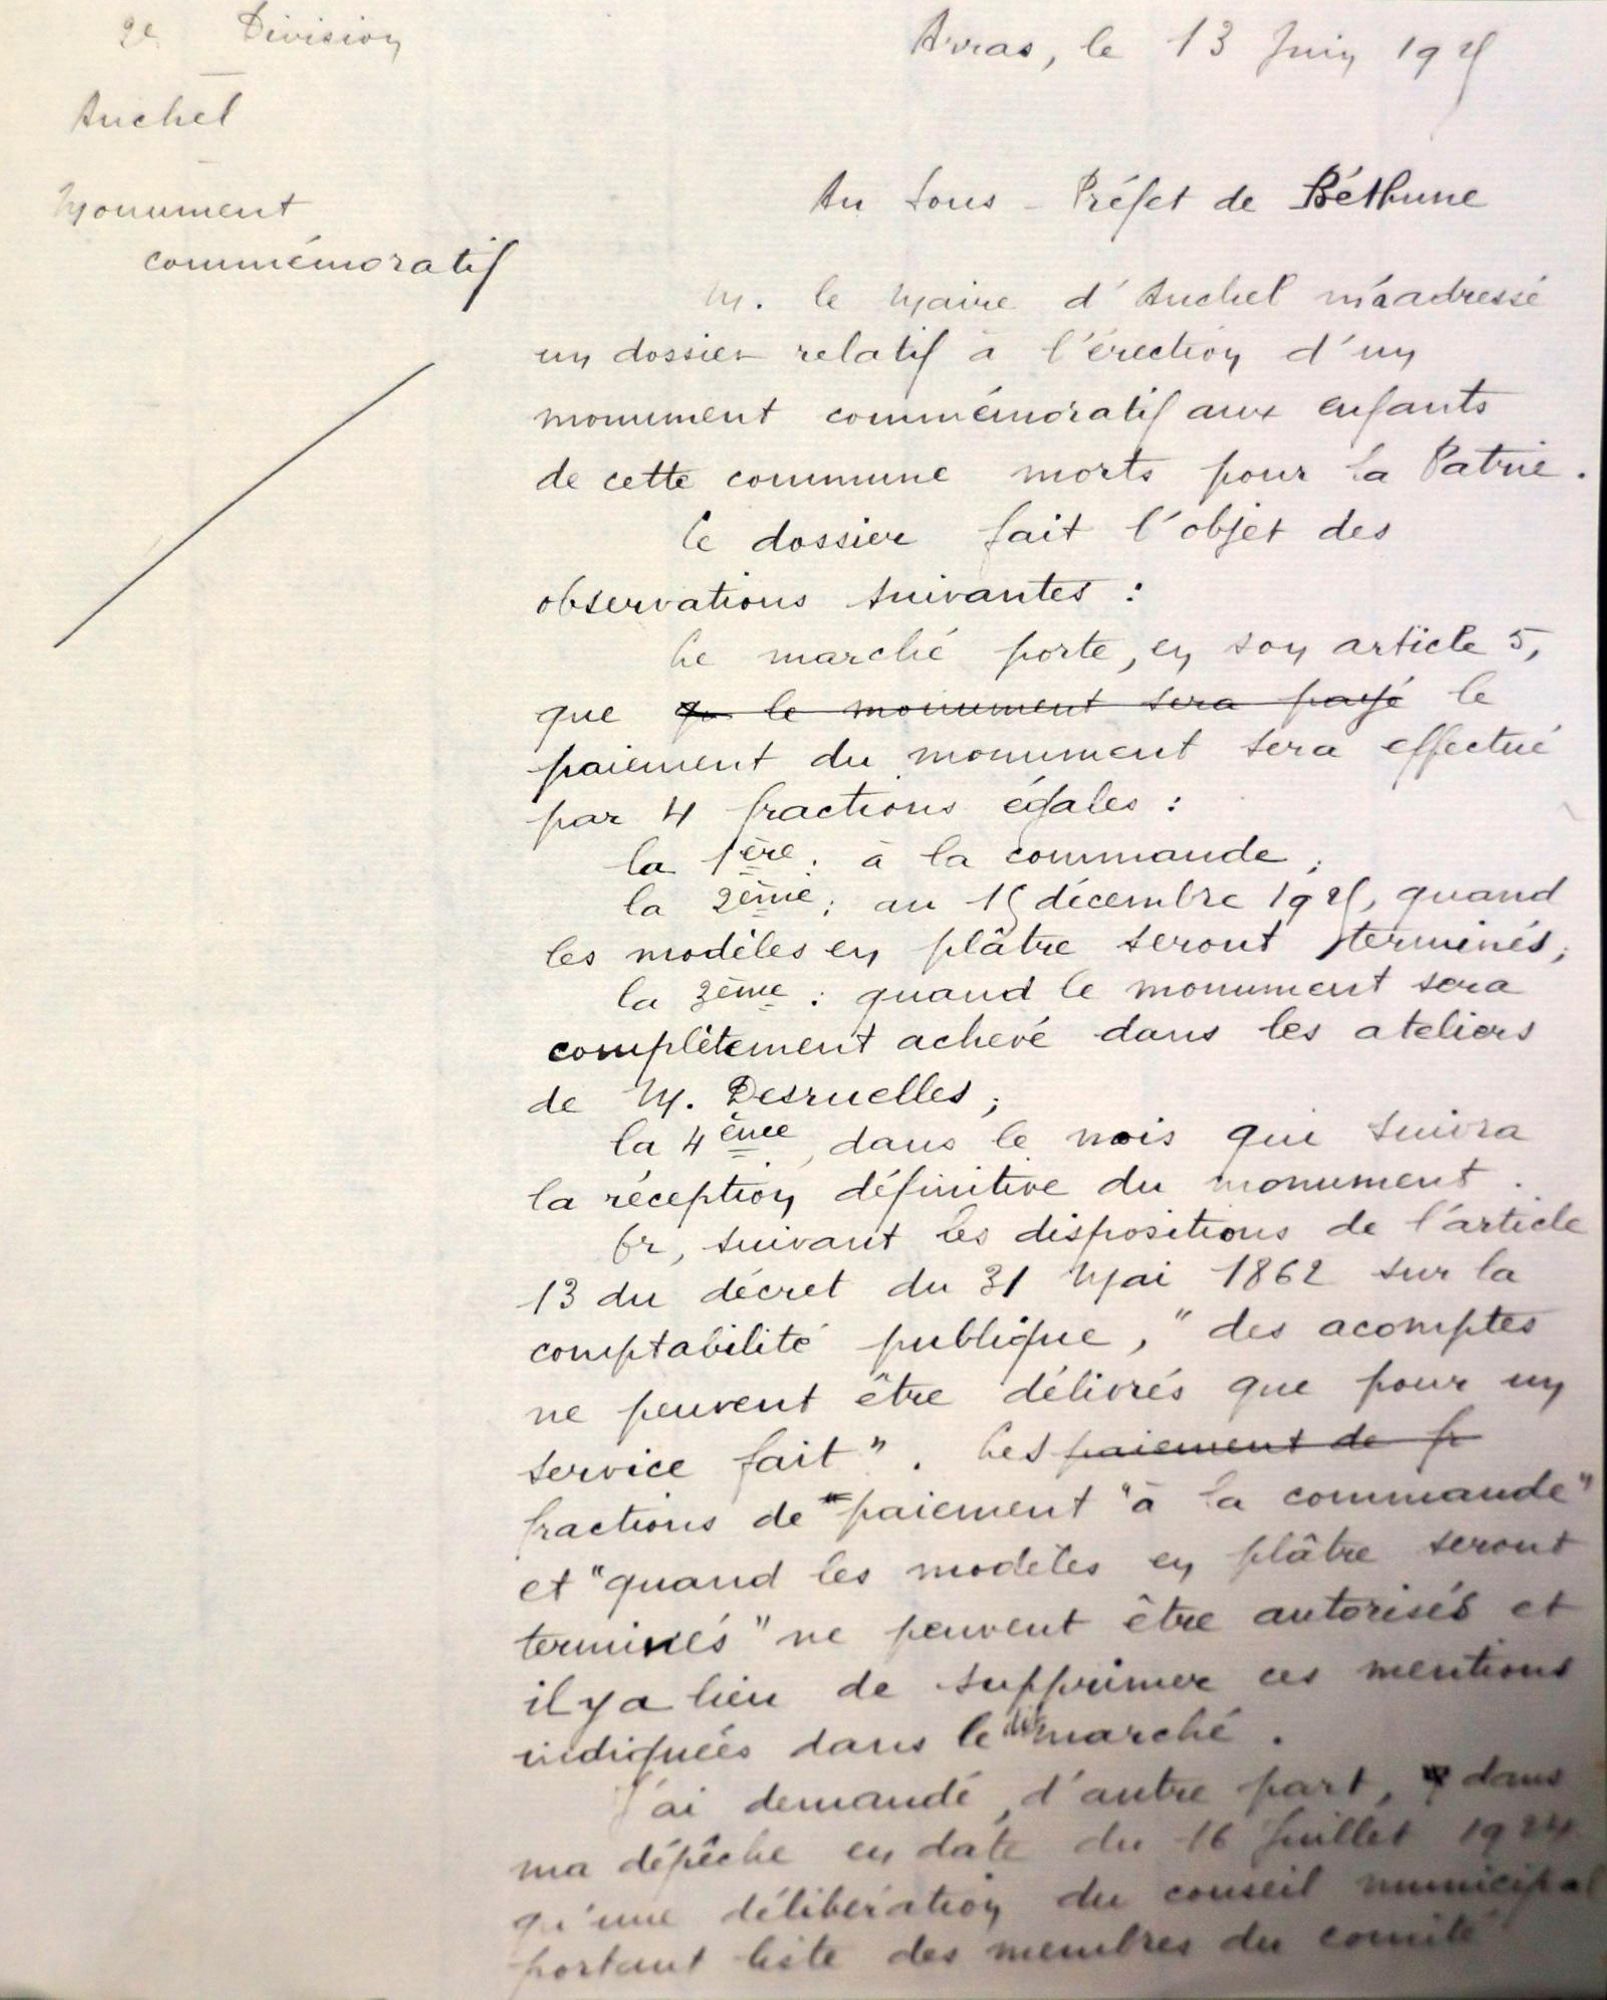 2e Division
Arras, le 13 Juin 1925
Auchel
Monument
commémoratif
Au Sous-Préfet de Béthune
M. le Maire d'Auchel m'a adressé
un dossier relatif à l'érection d'un
monument commémoratif aux enfants
de cette commune morts pour la Patrie.
Ce dossier fait l'objet des
observations suivantes :
Le marché porte, en son article 5,
que qu le monument sera payé le
paiement du monument sera effectué
par 4 fractions égales :
la 1ère : à la commande ;
la 2ème : au 15 décembre 1925, quand
les modèles en plâtre seront terminés ;
la 3ème : quand le monument sera
complètement achevé dans les ateliers
de M. Desruelles ;
la 4ème, dans le mois qui suivra
la réception définitive du monument.
Or, suivant les dispositions de l'article
13 du décret du 31 Mai 1862 sur la
comptabilité publique, "des acomptes
ne peuvent être délivrés que pour un
service fait". Les paiement de fr
fractions de paiement "à la commande"
et "quand les modèles en plâtre seront
terminés" ne peuvent être autorisés et
il y a lieu de supprimer ces mentions
indiquées dans le dit marché.
J'ai demandé, d'autre part, dans
ma dépêche en date du 16 Juillet 1924
qu'une délibération du conseil municipal
portant liste des membres du comité